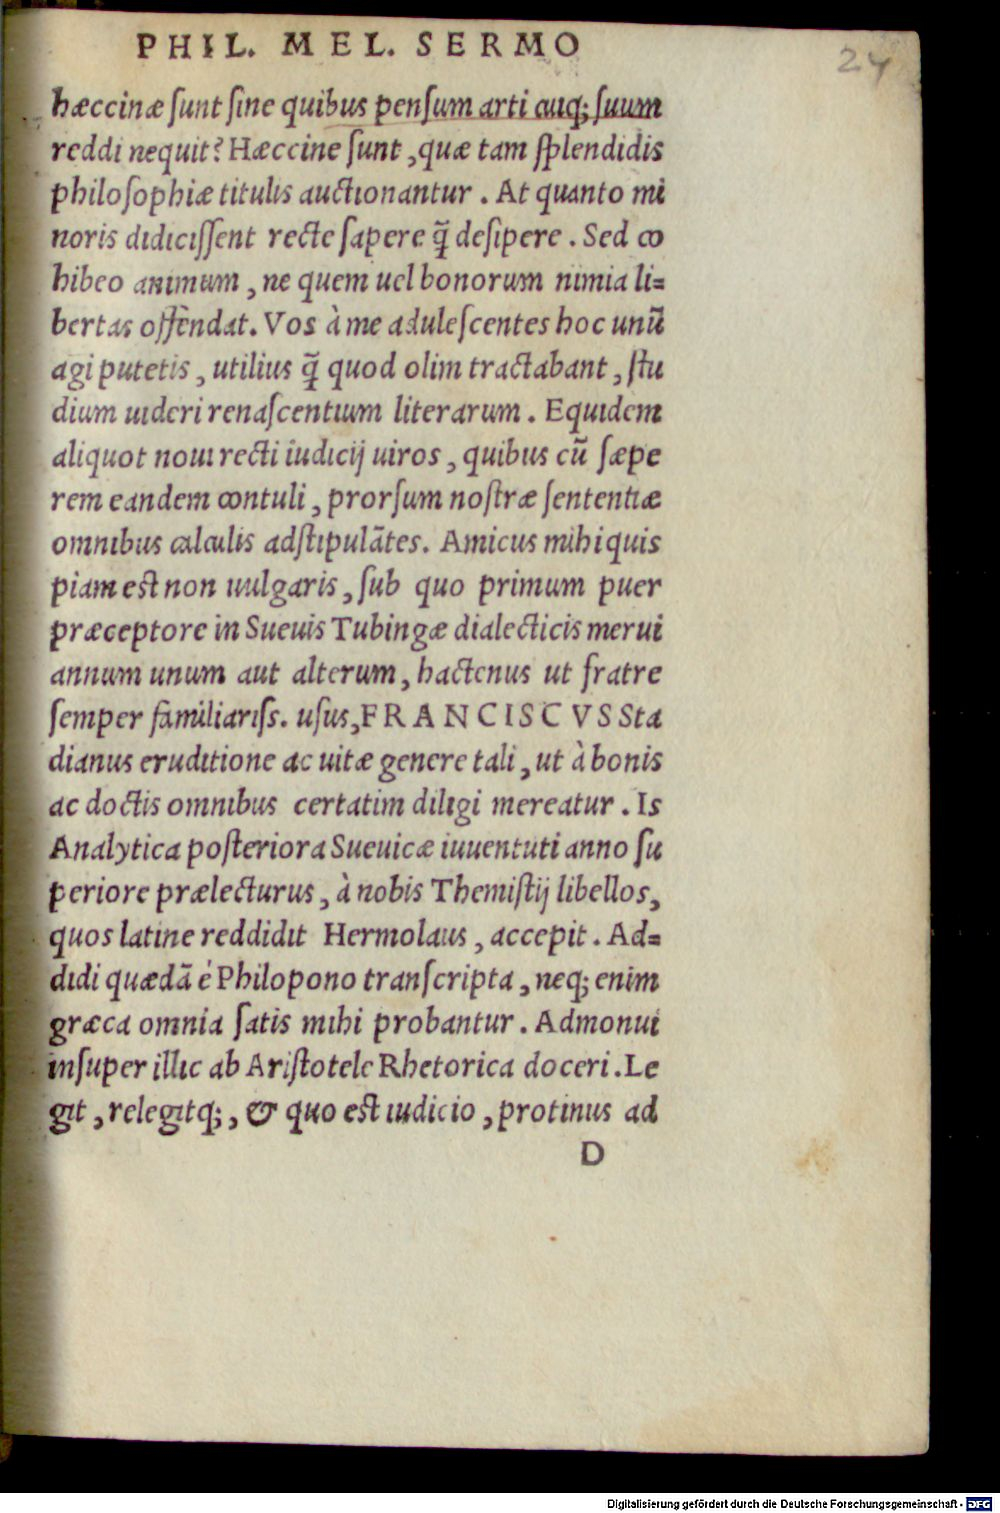 PHIL. MEL. SERMO
24
hæccinæ ſunt ſine quibus penſum arti cuiq; ſuum
reddi nequit? Hæccine ſunt, quæ tam ſplendidis
philoſophiæ titulis auctionantur. At quanto mi
noris didiciſſent recte ſapere q̃ deſipere. Sed co
hibeo animum, ne quem uel bonorum nimia li=
bertas offendat. Vos à me aduleſcentes hoc unũ
agi putetis, utilius q̃ quod olim tractabant, ſtu
dium uideri renaſcentium literarum. Equidem
aliquot noui recti iudicij uiros, quibus cũ ſæpe
rem eandem contuli, prorſum noſtræ ſententiæ
omnibus calculis adſtipulãtes. Amicus mihi quis
piam est non uulgaris, ſub quo primum puer
præceptore in Sueuis Tubingæ dialecticis merui
annum unum aut alterum, hactenus ut fratre
ſemper familiariſs. uſus, FRANCISCVS Sta
dianus eruditione ac uitæ genere tali, ut à bonis
ac doctis omnibus certatim diligi mereatur. Is
Analytica poſteriora Sueuicæ iuuentuti anno ſu
periore prælecturus, à nobis Themiſtij libellos,
quos latine reddidit Hermolaus, accepit. Ad=
didi quædã è Philopono tranſcripta, neq; enim
græca omnia ſatis mihi probantur. Admonui
inſuper illic ab Ariſtotele Rhetorica doceri. Le
git, relegitq;, & quo est iudicio, protinus ad
D
Digitalisierung gefördert durch die Deutsche Forschungsgemeinschaft - DFG